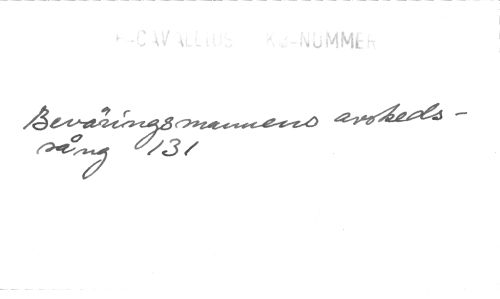 H-CAVALLIUS KB-NUMMER
Beväringsmannens avskeds-
sång 131